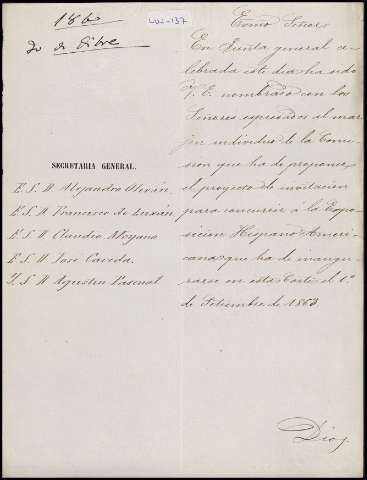 186
30 de Dibre
LUJ-137
SECRETARIA GENERAL.
E. S. D. Alejandro Olivan.
E. S. D. Francisco de Luxán
E. S. D. Claudio Moyano
E. S. D. José Caveda.
Y. S. D. Agustin Pascual
Excmo Señor
En Junta general ce-
lebrada este dia ha sido
V. E. nombrado con los
Señores espresados al mar-
jen individuo de la Comi-
sion que ha de proponer
el proyecto de invitacion
para concurrir á la Espo-
sicion Hispano Ameri-
cana que ha de inaugu-
rarse en esta Corte el 1º
de Setiembre de 1863.
Dios